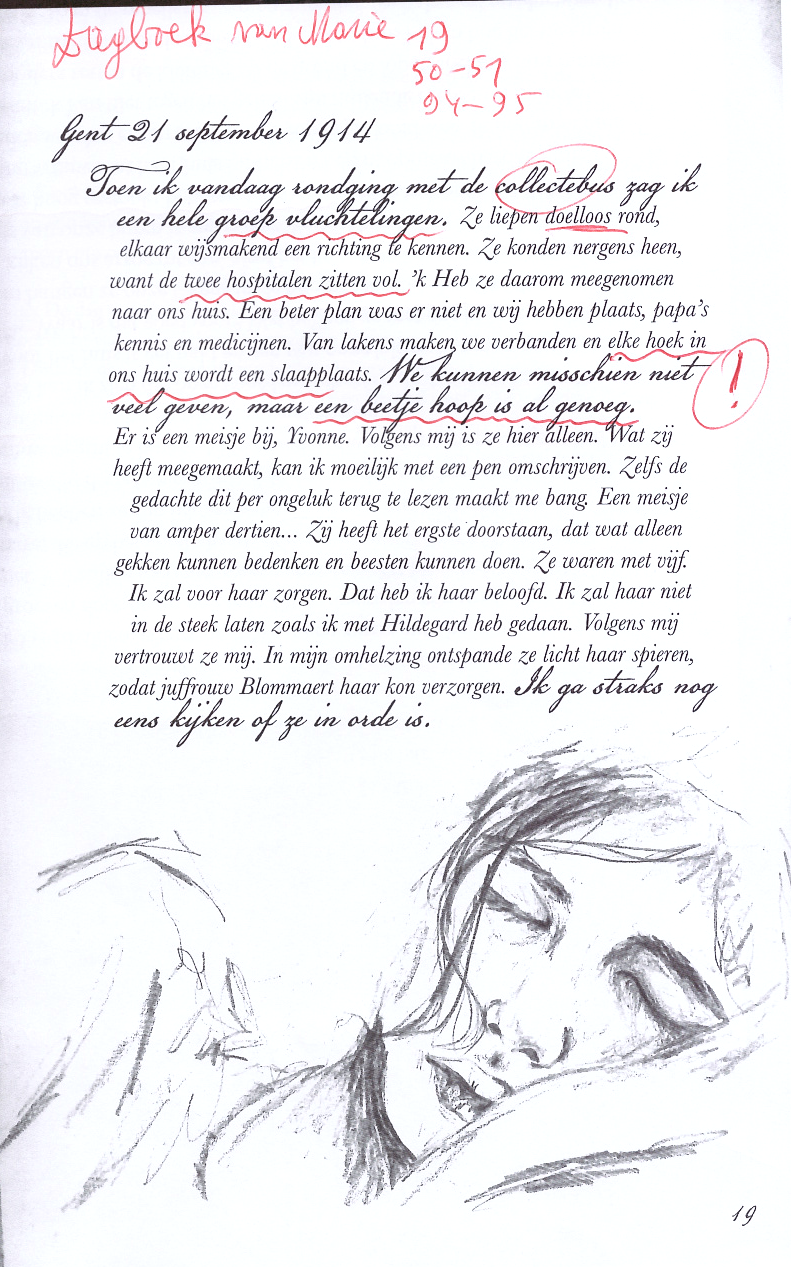 Dagboek van Marie 19
50-51
94-95
Gent 21 september 1914
Toen ik vandaag rondging met de collectebus zag ik
een hele groep vluchtelingen. Ze liepen doelloos rond,
elkaar wijsmakend een richting te kennen. Ze konden nergens heen,
want de twee hospitalen zitten vol. 'k Heb ze daarom meegenomen
naar ons huis. Een beter plan was er niet en wij hebben plaats, papa's
kennis en medicijnen. Van lakens maken we verbanden en elke hoek in
ons huis wordt een slaapplaats. We kunnen misschien niet
veel geven, maar een beetje hoop is al genoeg.
!
Er is een meisje bij, Yvonne. Volgens mij is ze hier alleen. Wat zij
heeft meegemaakt, kan ik moeilijk met een pen omschrijven. Zelfs de
gedachte dit per ongeluk terug te lezen maakt me bang. Een meisje
van amper dertien... Zij heeft het ergste doorstaan, dat wat alleen
gekken kunnen bedenken en beesten kunnen doen. Ze waren met vijf.
Ik zal voor haar zorgen. Dat heb ik haar beloofd. Ik zal haar niet
in de steek laten zoals ik met Hildegard heb gedaan. Volgens mij
vertrouwt ze mij. In mijn omhelzing ontspande ze licht haar spieren,
zodat juffrouw Blommaert haar kon verzorgen. Ik ga straks nog
eens kijken of ze in orde is.
19